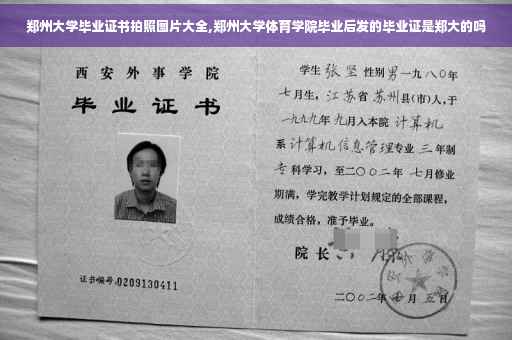 郑州大学毕业证书拍照图片大全,郑州大学体育学院毕业后发的毕业证是郑大的吗
西安外事学院
毕业证书
证书编号:0209130411
学生 张坚 性别 男 一九八〇年
七月生，江苏省 苏州县(市)人,于
一九九九年 九月入本院 计算机
系 计算机信息管理专业 三 年制
专科学习，至二〇〇二年 七月修业
期满，学完教学计划规定的全部课程，
成绩合格，准予毕业。
院长
二〇〇二年 月 五日